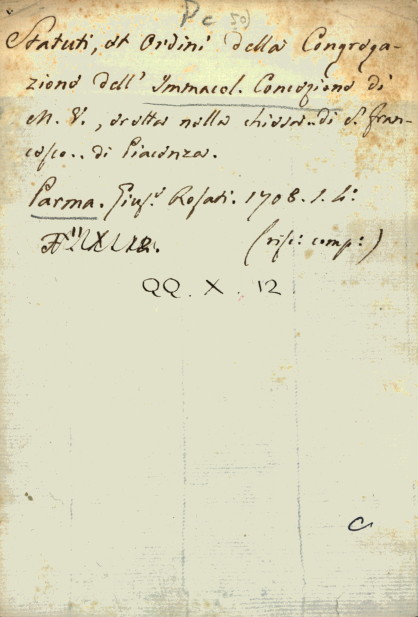 Pc 50)
Statuti, et Ordini della Congrega-
zione dell' Immacol. Concezione di
M. V., eretta nella chiesa.. di S. Fran-
cesco.. di Piacenza.
Parma. Gius.e Rosati. 1708. I. 4:
(risc: comp:)
QQ. X. 12
C